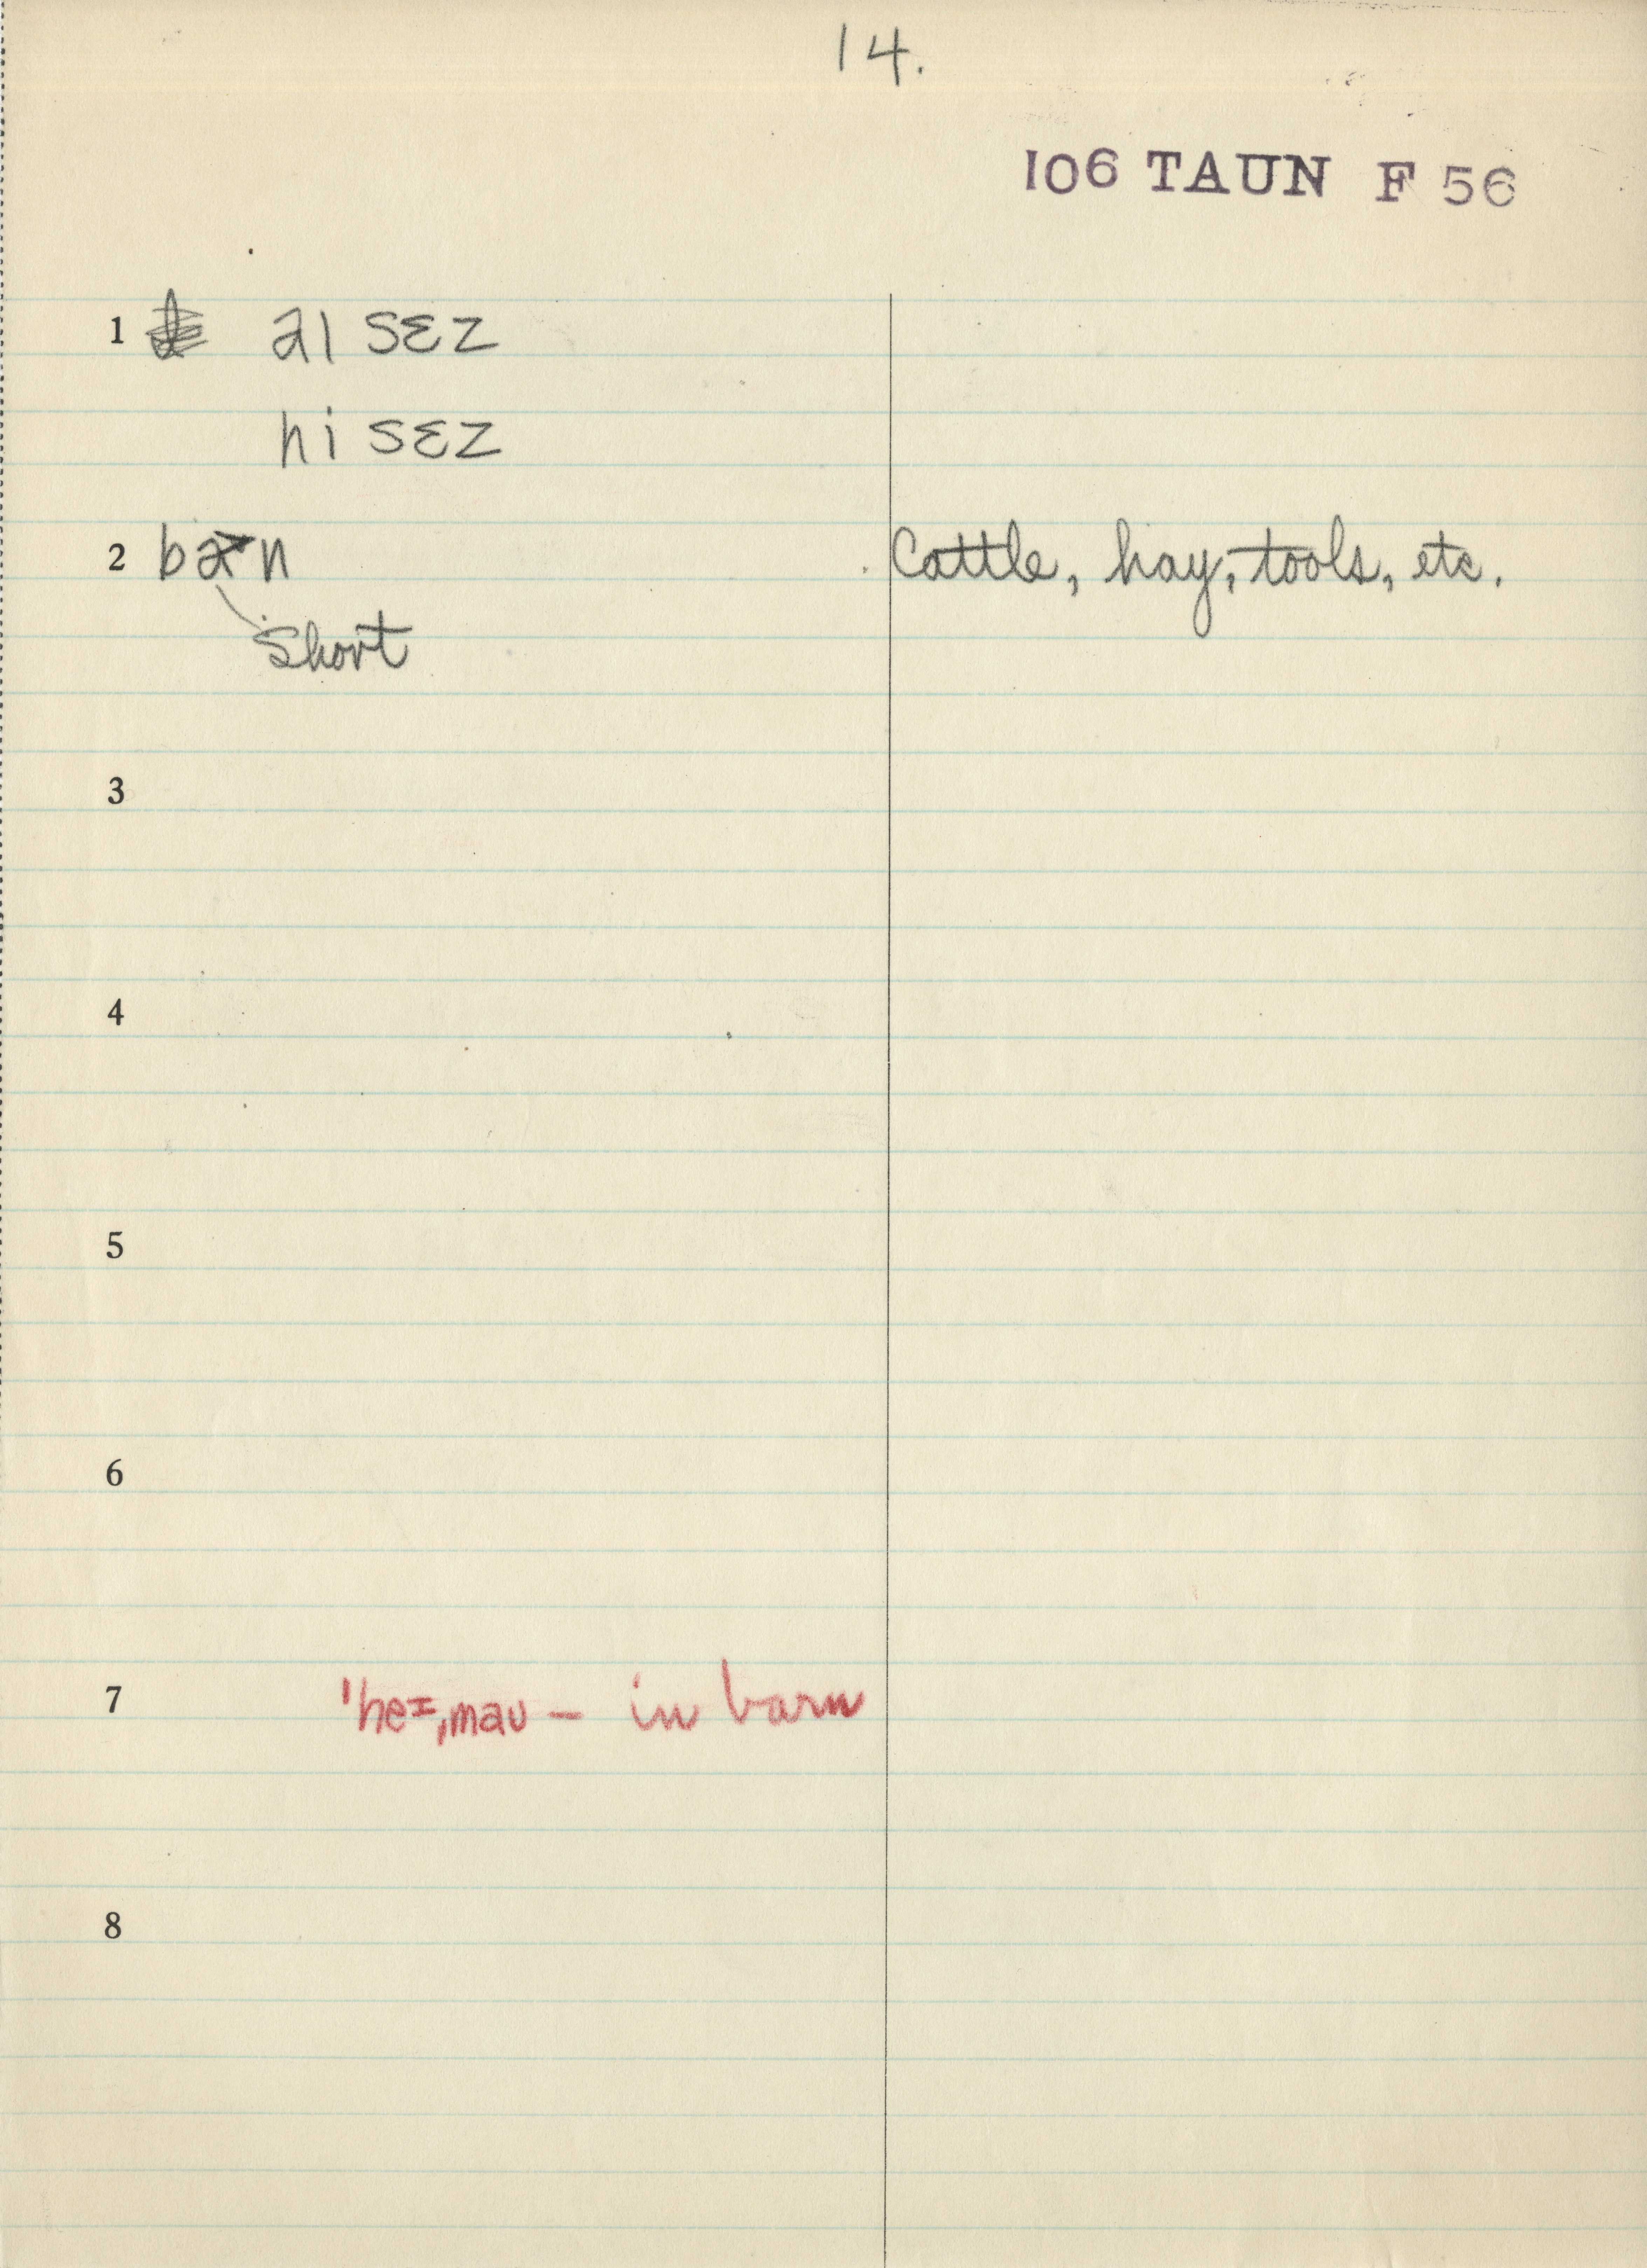 14.
106 TAUN F 56
1 aɪ sɛz
hi sɛz
2 ban Cattle, hay, tools, etc.
Short
3
4
5
6
7 ˈheɪˌmaʊ — in barn
8